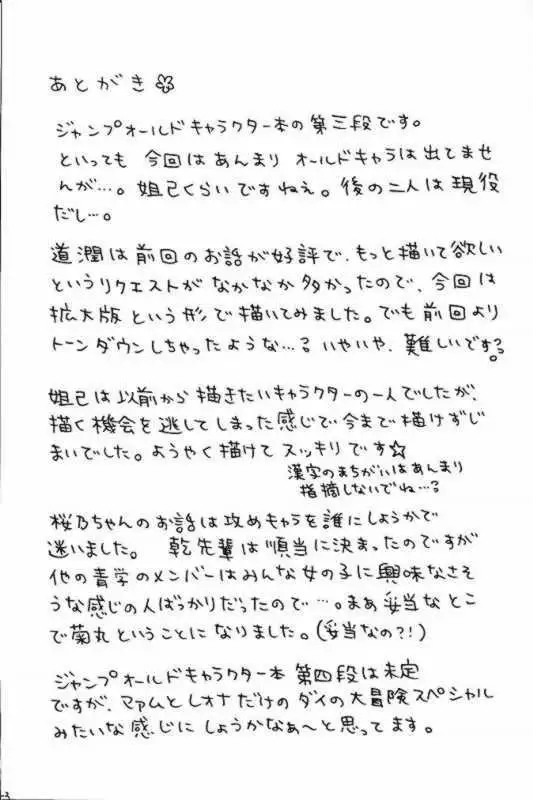 あとがき
ジャンプオールドキャラクター本の第三段です。
といっても 今回はあんまり オールドキャラは出てませ
んが…。妲己くらいですねえ。後の二人は現役
だし…。
道潤は前回のお話が好評で、もっと描いて欲しい
というリクエストが なかなか多かったので、今回は
拡大版という形で描いてみました。でも前回より
トーンダウンしちゃったような…? いやいや、難しいです??。
妲己は以前から描きたいキャラクターの一人でしたが、
描く機会を逃してしまった感じで今まで描けずじ
まいでした。ようやく描けて スッキリです☆
漢字のまちがいはあんまり
指摘しないでね…?
桜乃ちゃんのお話は攻めキャラを誰にしようかで
迷いました。 乾先輩は順当に決まったのですが
他の青学のメンバーはみんな女の子に興味なさそ
うな感じの人ばっかりだったので…。まあ妥当なとこ
で菊丸ということになりました。(妥当なの?!)
ジャンプオールドキャラクター本 第四段は未定
ですが、マァムとレオナだけのダイの大冒険スペシャル
みたいな感じにしようかなぁ〜と思ってます。